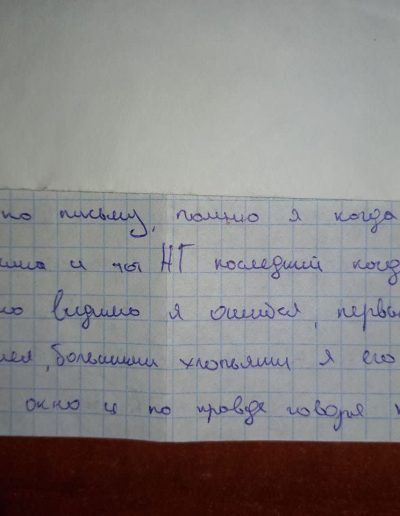 по письму, помню я когда
и ты НГ последний когд
видимо я ошибся, первы
, большими хлопьями я его
окно и по правде говоря